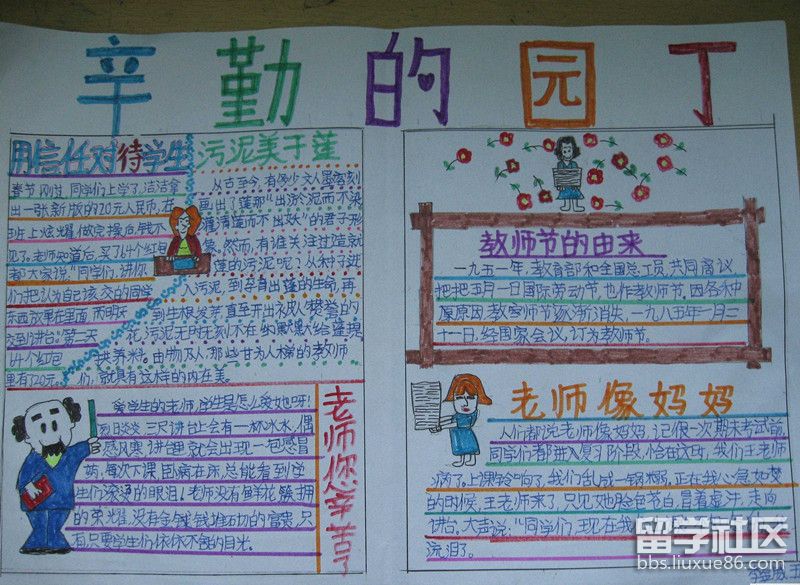 辛勤的园丁
用信任对待学生
春节刚过,同学们上学了,洁洁拿
出一张新版的20元人民币,在
班上炫耀,做完操后钱不
见了。老师知道后,买了64个红包
对大家说:"同学们,请你
们把认为自己该交的同学
东西放里在里面,而明天
交到讲台"第二天
14个红包
里有了20元。
污泥美于莲
从古至今,有多少文人墨客刻
画出了莲那"出淤泥而不染
濯清莲而不出妖"的君子形
象,然而,有谁关注过造就
莲的污泥呢?从种子进
入污泥,到孕育出莲的生命,再
到生根发芽直至开出
花,污泥无时无刻不在
供养料。由物及人,那些甘为人梯的教师
们,就具有这样的内在美。
教师节的由来
一九五一年,教育部和全国总工员,共同商议
把把五月一日国际劳动节,也作教师节。因各种
原因教教师节逐渐消失,一九八五年一月二
十一日,经国家会议,订为教师节。
老师您辛苦了
爱学生的老师,学生是怎么爱她呀!
烈日炎炎三尺讲台上会有一杯冰水,偶
感风寒讲台里就会出现一包感冒
药,每次下课,卧病在床,总能看到学
生们滚烫的眼泪!老师没有鲜花簇拥
的荣耀,没有金钱钱堆砌的富贵,只
有只要学生们依依不舍的目光。
老师像妈妈
人们都说老师像妈妈,记很一次期末考试前,
同学们都进入复习阶段,恰在这时,我们王老师
病了。上课铃响了,我们乱成一锅粥,正在我心急如焚
的时候,王老师来了,只见她脸色苍白,冒着虚汗,走向
讲台,大声说:"同学们,现在我
流泪了。
留学社区
bbs.liuxue86.com